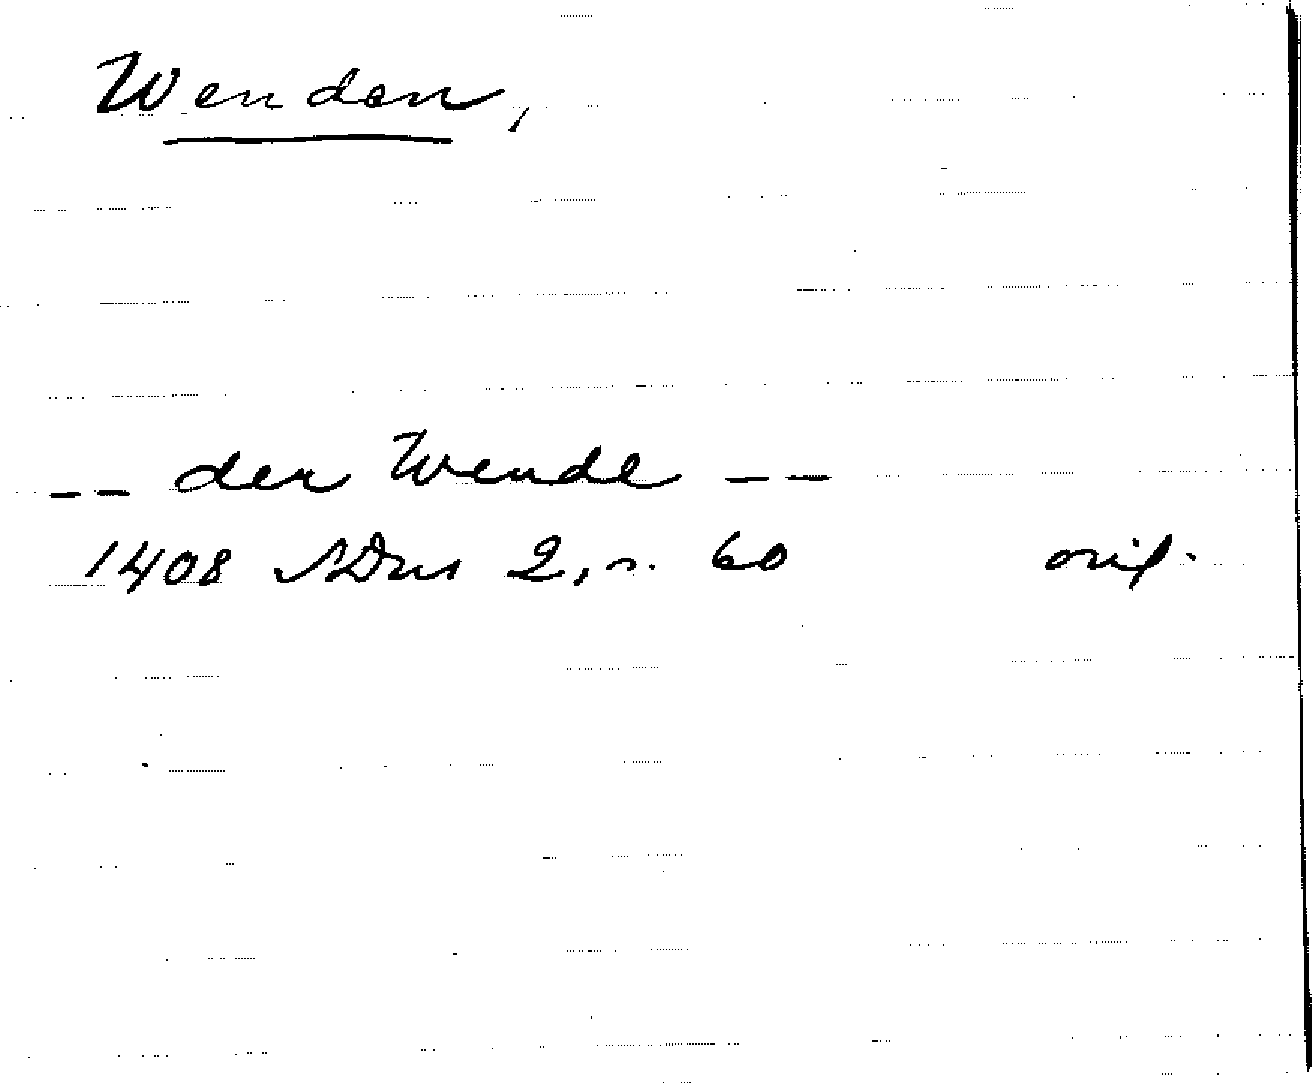 Wenden,
-- den Wende --
1408 SDns 2, s. 60 orig.